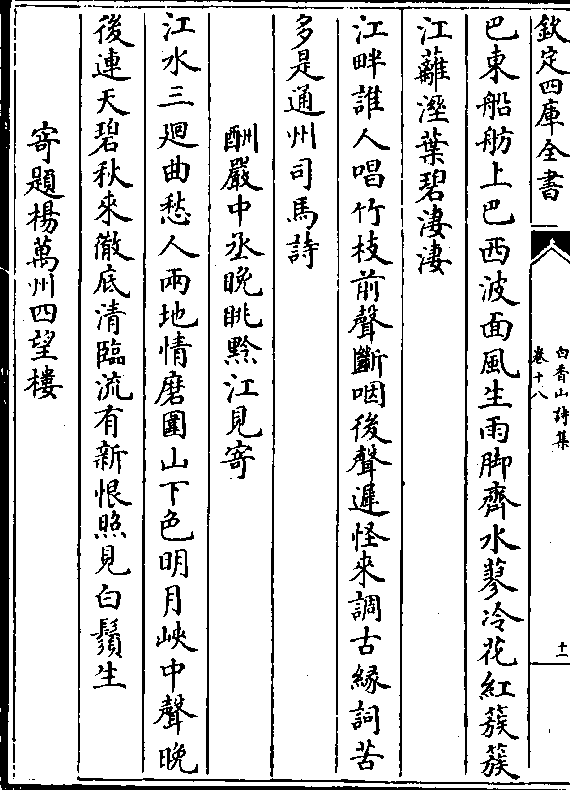 欽定四庫全書
白香山詩集
卷十八
十二
巴東船舫上巴西波面風生雨脚齊水蓼冷花紅簇簇
江蘺溼葉碧凄凄
江畔誰人唱竹枝前聲斷咽後聲遲怪來調古緣詞苦
多是通州司馬詩
酬嚴中丞晚眺黔江見寄
江水三廻曲愁人兩地情磨圍山下色明月峽中聲晚
後連天碧秋來徹底清臨流有新恨照見白鬚生
寄題楊萬州四望樓